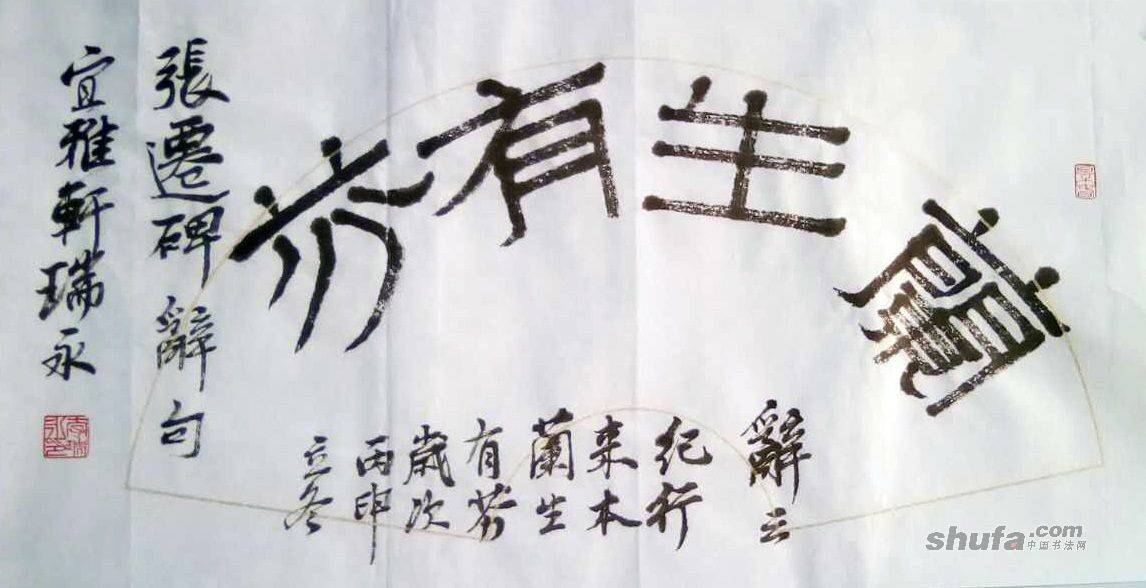 蘭生有芬
辭云
紀行
来本
蘭生
有芬
歲次
丙申
立冬
張遷碑辭句
宜雅軒瑞永
shufa.com
中国书法网